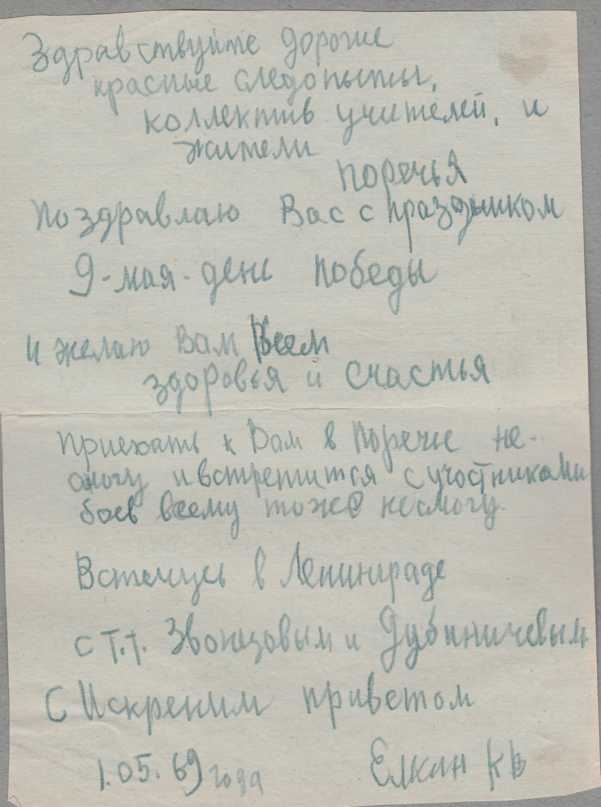 Здравствуйте дорогие
красные следопыты,
коллектив учителей, и
жители
Поречья
Поздравлаю Вас с праздником
9-мая-день Победы
и желаю Вам Всем
здоровья и счастья
Приехать к Вам в Поречье не-
смогу и встретится с участниками
боев всему тоже несмогу.
Встечусь в Ленинграде
с т.т. Звонцовым и Дубиничевым
С Искреним приветом
1.05.69 года Елкин КВ